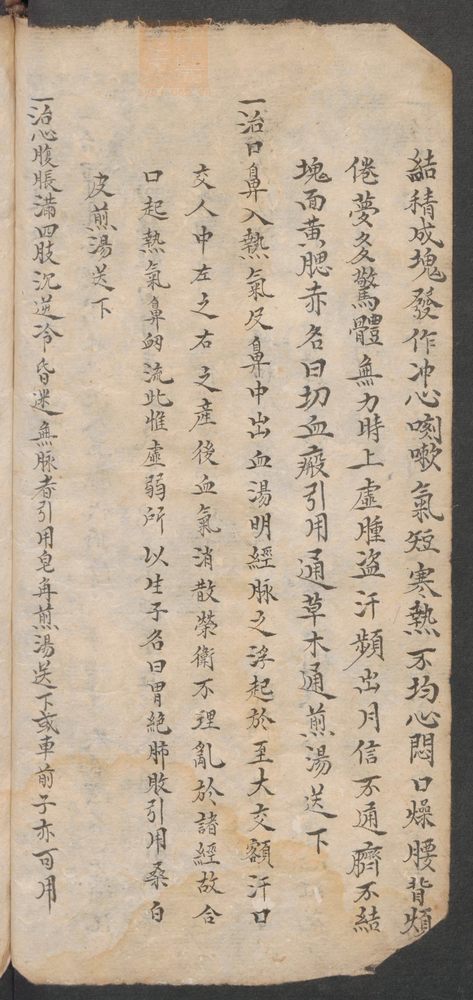 結積成塊發作冲心咳嗽氣短寒熱不均心悶口燥腰背煩
倦夢多驚體無力時上虛腫盗汗頻出月信不通臍不結
塊面黄腮赤名曰切血瘕引用通草木通煎湯送下
一治口鼻入熱氣及鼻中出血湯明經脉之浮起於至大交額汗口
交人中左之右之産後血氣消散榮衛不理亂於諸經故合
口起熱氣鼻衂流此惟虛弱所以生子名曰胃絶肺敗引用桑白
皮煎湯送下
一治心腹脹滿四肢沉逆冷昏迷無脉者引用皂角煎湯送下或車前子亦可用